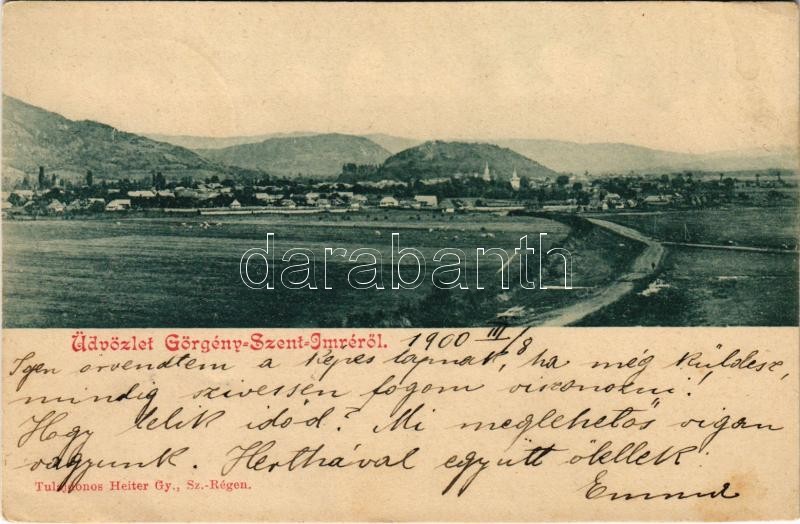 darabanth
Üdvözlet Görgény-Szent-Imréről. 1900 III/8
Igen örvendtem a képes lapnak, ha még küldesz,
mindig szivessen fogom viszonozni!
Hogy telik időd? Mi meglehetős vigan
vagyunk. Herthával együtt ölellek
Emma
Tulajdonos Heiter Gy., Sz.-Régen.